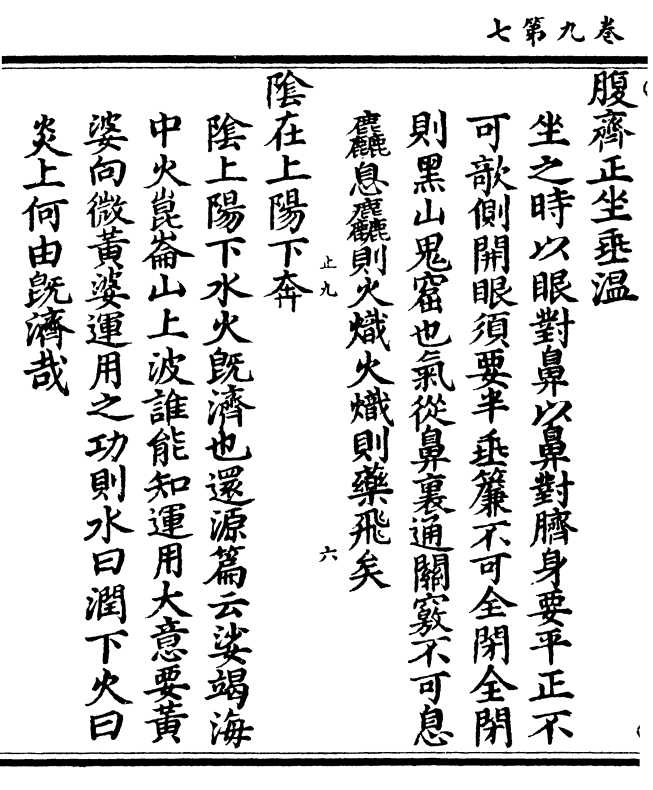 卷九第七
腹齊正坐垂溫
坐之時以眼對鼻以鼻對臍身要平正不
可歆側開眼須要半垂簾不可全閉全閉
則黑山鬼窟也氣從鼻裏通關竅不可息
麤息麤則火熾火熾則藥飛矣
止九
六
陰在上陽下奔
陰上陽下水火旣濟也還源篇云娑竭海
中火崑崙山上波誰能知運用大意要黃
婆向微黃婆運用之功則水曰潤下火曰
炎上何由旣濟哉